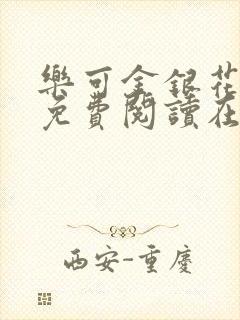 樂可金銀花
免費閱讀在
西安-重慶